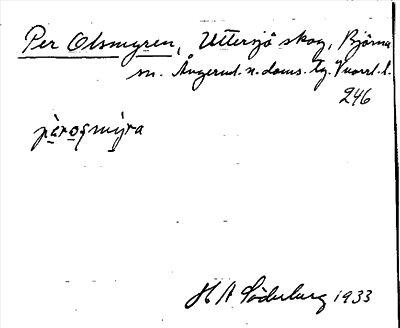 Per Olsmyren, Uttersjö skog, Björna
sn. Ångerml. n. doms. tg. Vuorrl. l.
246
pèrosmýra
H A Söderberg 1933